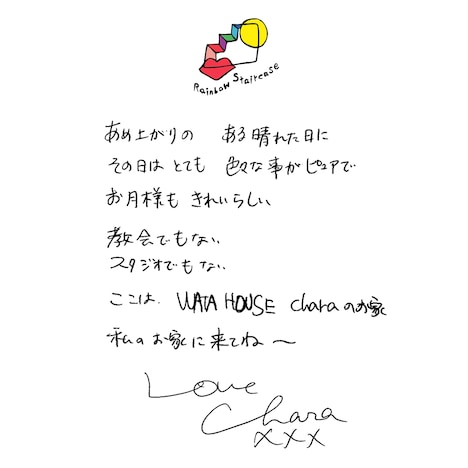 Rainbow Staircase
あめ上がりの ある晴れた日に
その日は とても 色々な事がピュアで
お月様も きれいらしい
教会でもない
スタジオでもない
ここは WATA HOUSE charaのお家
私のお家に来てね〜
Love
Chara
xxx